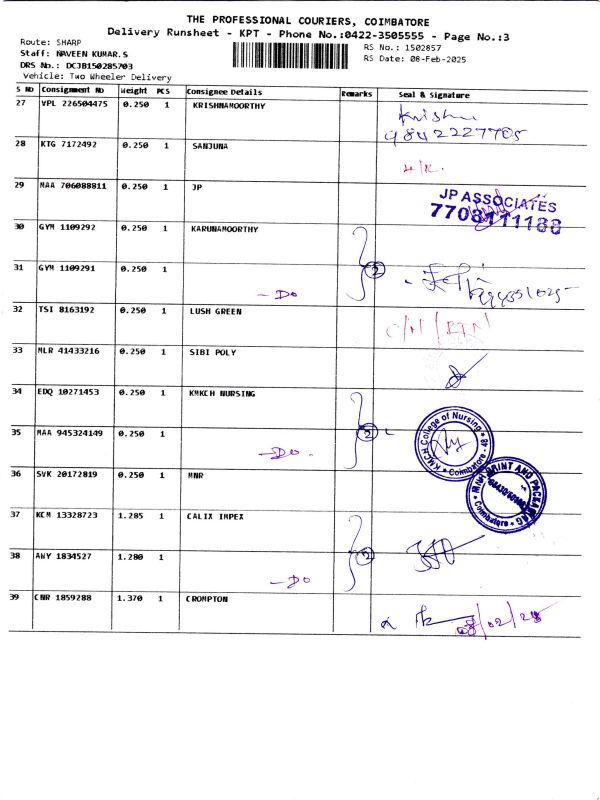 THE PROFESSIONAL COURIERS, COIMBATORE
Delivery Runsheet - KPT - Phone No.:0422-3505555 - Page No.:3
Route: SHARP
RS No.: 1502857
Staff: NAVEEN KUMAR.S
RS Date: 08-Feb-2025
DRS No.: DCJB150285703
Vehicle: Two Wheeler Delivery
S No Consignment No Weight PCS Consignee Details Remarks Seal & Signature
27 VPL 226504475 0.250 1 KRISHNAMOORTHY
9842227705
28 KTG 7172492 0.250 1 SANJUNA
29 MAA 706088811 0.250 1 JP
JP ASSOCIATES
7708111188
30 GYM 1109292 0.250 1 KARUNAMOORTHY
31 GYM 1109291 0.250 1
2
- Do
32 TSI 8163192 0.250 1 LUSH GREEN
33 MLR 41433216 0.250 1 SIBI POLY
34 EDQ 10271453 0.250 1 KMKCH NURSING
35 MAA 945324149 0.250 1
2
- Do .
KMCH College of Nursing * Coimbatore - 48 *
36 SVK 20172819 0.250 1 MNR
PRINT AND PACKAGING * Coimbatore *
37 KCM 13328723 1.285 1 CALIX IMPEX
38 ANY 1834527 1.280 1
2
- Do
39 CNR 1859288 1.370 1 CROMPTON
08/02/25